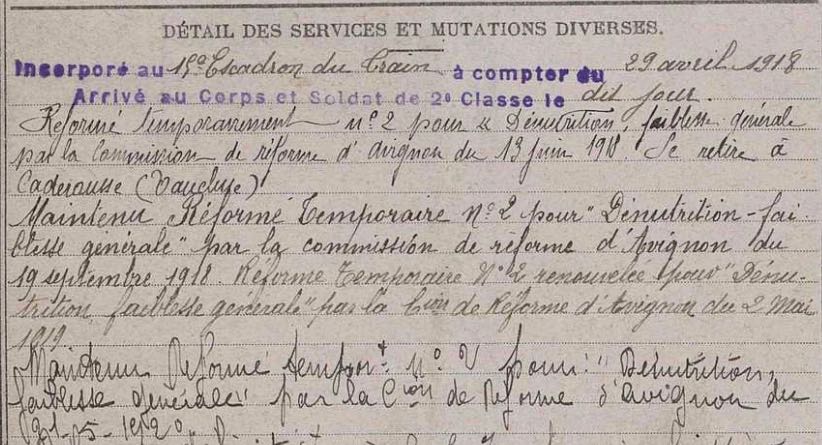 DÉTAIL DES SERVICES ET MUTATIONS DIVERSES.
Incorporé au 15e Escadron du Train à compter du 29 avril 1918
Arrivé au Corps et Soldat de 2e Classe le dit jour.
Réformé temporairement n° 2 pour « Dénutrition, faiblesse générale
par la Commission de réforme d'Avignon du 13 juin 1918. Se retire à
Caderousse (Vaucluse)
Maintenu Réformé Temporaire N° 2 pour " Dénutrition - fai-
blesse générale " par la commission de réforme d'Avignon du
19 septembre 1918. Réforme Temporaire N° 2 renouvelée pour " Dénu-
trition, faiblesse générale " par la Cion de Réforme d'Avignon du 2 Mai
1919
Maintenu Réformé temport n° 2 pour : " Dénutrition,
faiblesse générale " par la Cion de Réforme d'Avignon du
21-5-1920